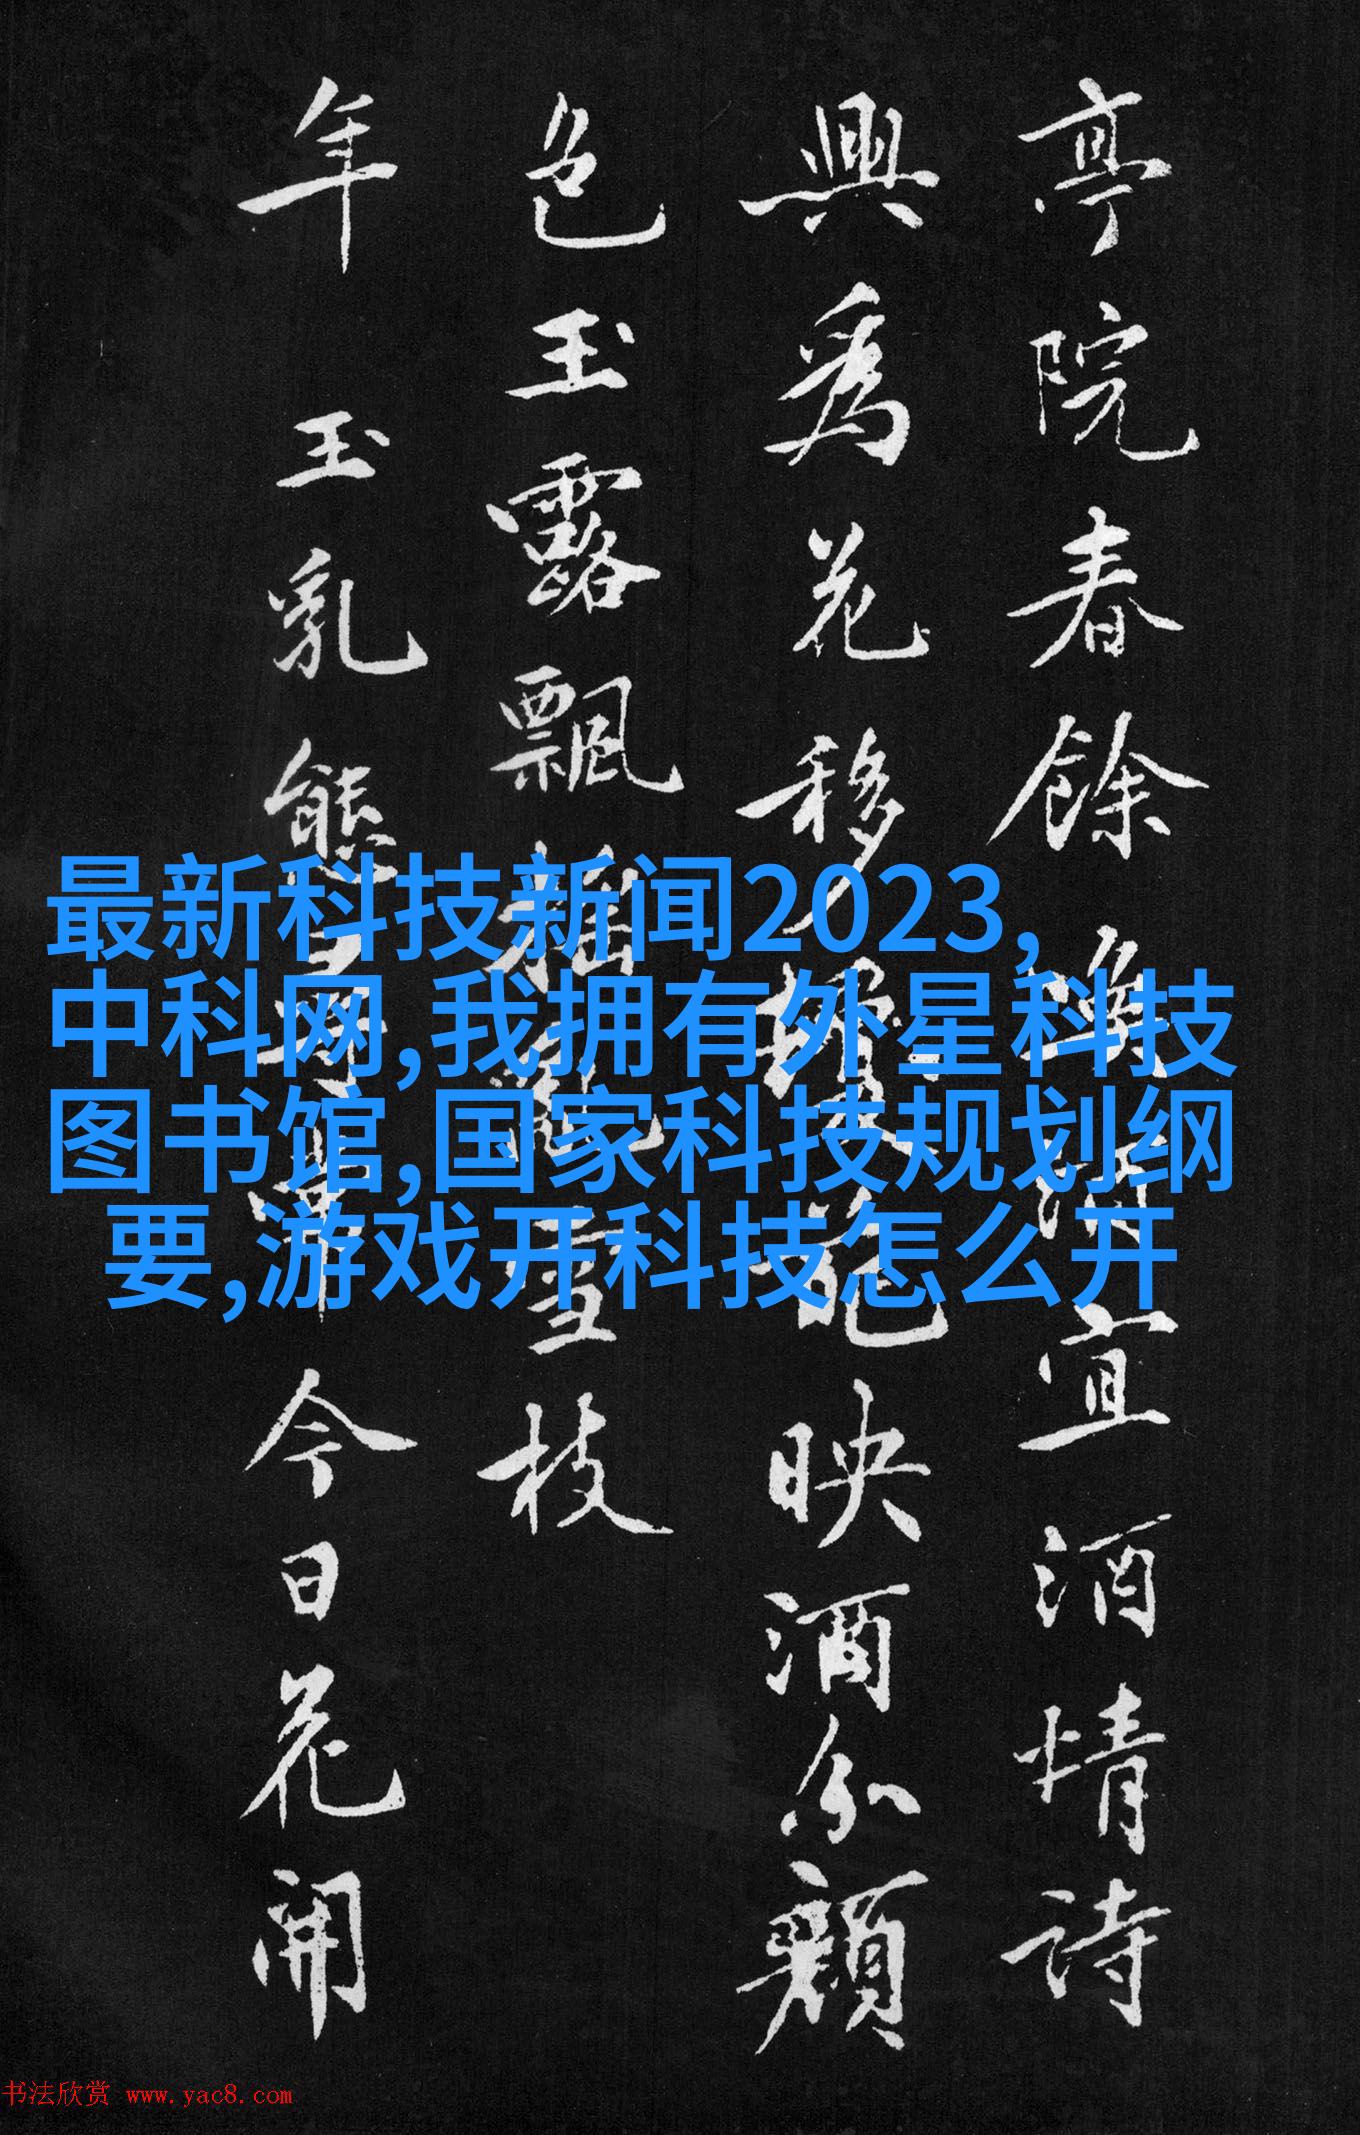 亭院春餘 宜酒情詩
興爲花移 映酒分顔
色玉露飄摇 雪枝
年 玉乳態 今日花開
最新科技新闻2023,
中科网,我拥有外星科技
图书馆,国家科技规划纲
要,游戏开科技怎么开
书法欣赏 www.yac8.com